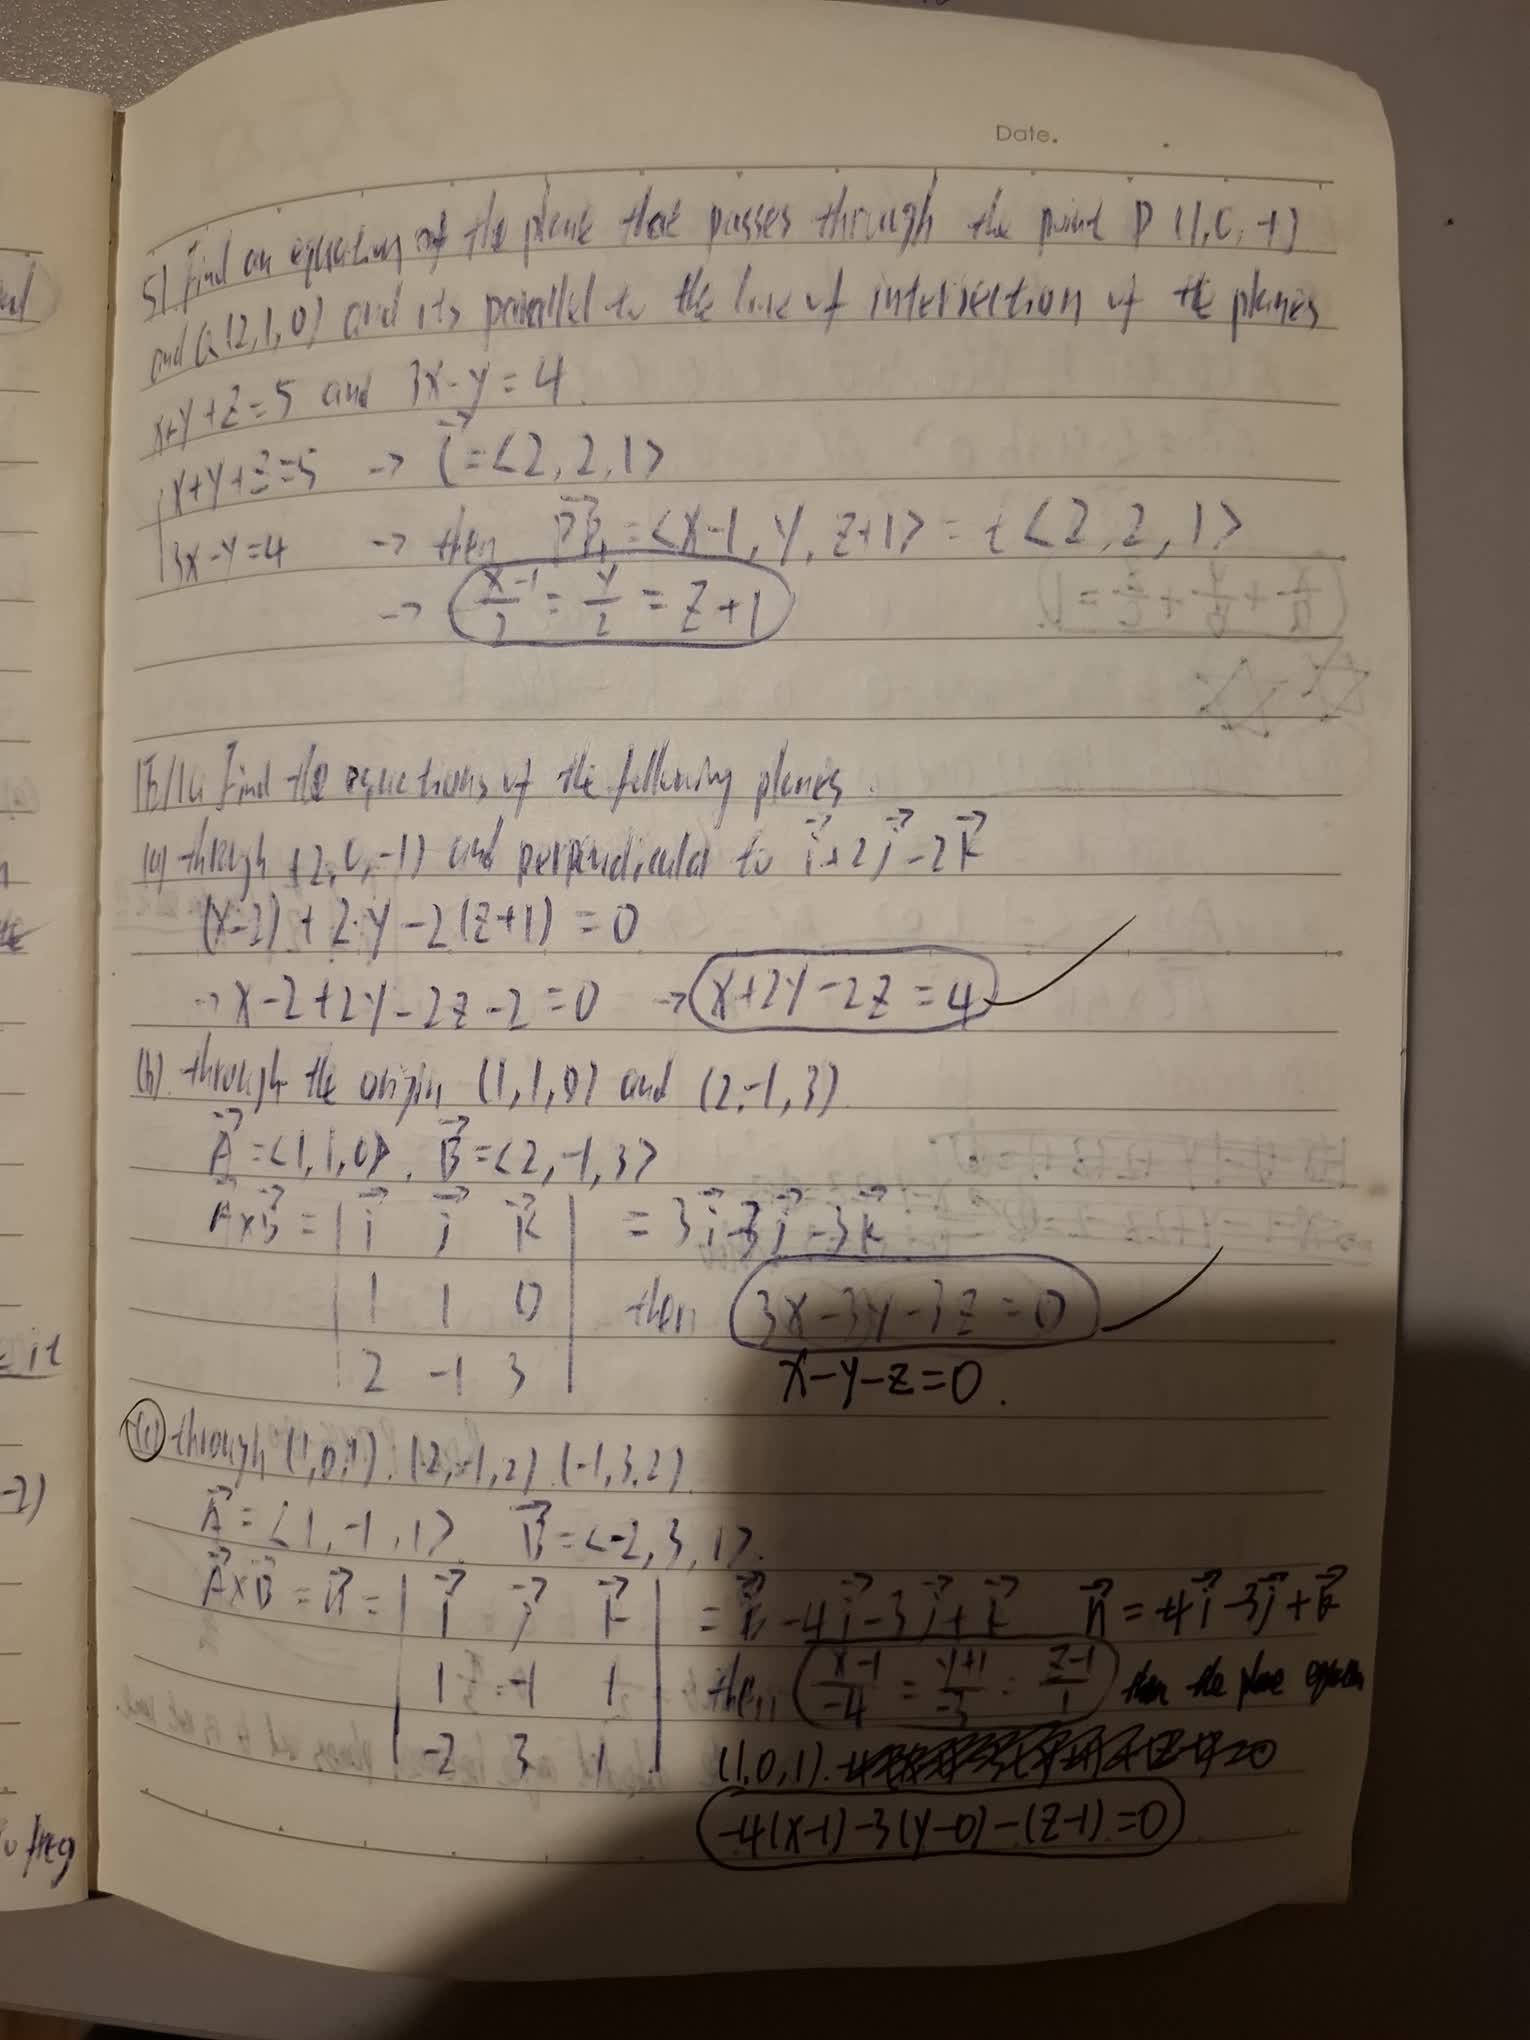 Date.
5) Find an equation of the plane that passes through the point P (1, 0, -1)
and Q (2, 1, 0) and its parallel to the line of intersection of the planes
x+y+z=5 and 3x-y=4.
x+y+z=5 → = <2, 2, 1>
3x-y=4 → then PP₁ = <x-1, y, z+1> = t <2, 2, 1>
→ (x-1)/2 = y/2 = z+1
Find the equations of the following planes.
(a) through (2, 0, -1) and perpendicular to i+2j-2k
(x-2) + 2·y - 2(z+1) = 0
→ x-2+2y-2z-2=0 → x+2y-2z=4
(b). through the origin (1, 1, 0) and (2, -1, 3).
A = <1, 1, 0>. B = <2, -1, 3>
A×B = | i j k | = 3i-3j-3k
1 1 0 then 3x-3y-3z=0
2 -1 3 x-y-z=0.
(c) through (1, 0, 1). (2, -1, 2) (-1, 3, 2)
A = <1, -1, 1>. B = <-2, 3, 1>.
A×B = n = | i j k | = -4i-3j+k n = -4i-3j+k
1 -1 1 then (x-1)/-4 = (y+1)/-3 = (z-1)/1 then the plane
-2 3 1 (1, 0, 1).
-4(x-1)-3(y-0)-(z-1)=0
= it
-2)
freq